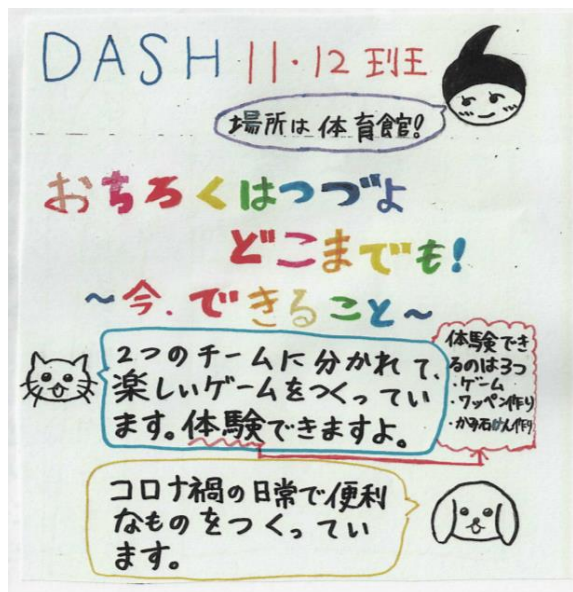 DASH 11・12 班
場所は体育館!
おちろくはつづよ
どこまでも!
～今、できること～
2つのチームに分かれて、
楽しいゲームをつくってい
ます。体験できますよ。
体験でき
るのは3つ
・ゲーム
・ワッペン作り
・かみ石けん作り
コロナ禍の日常で便利
なものをつくってい
ます。